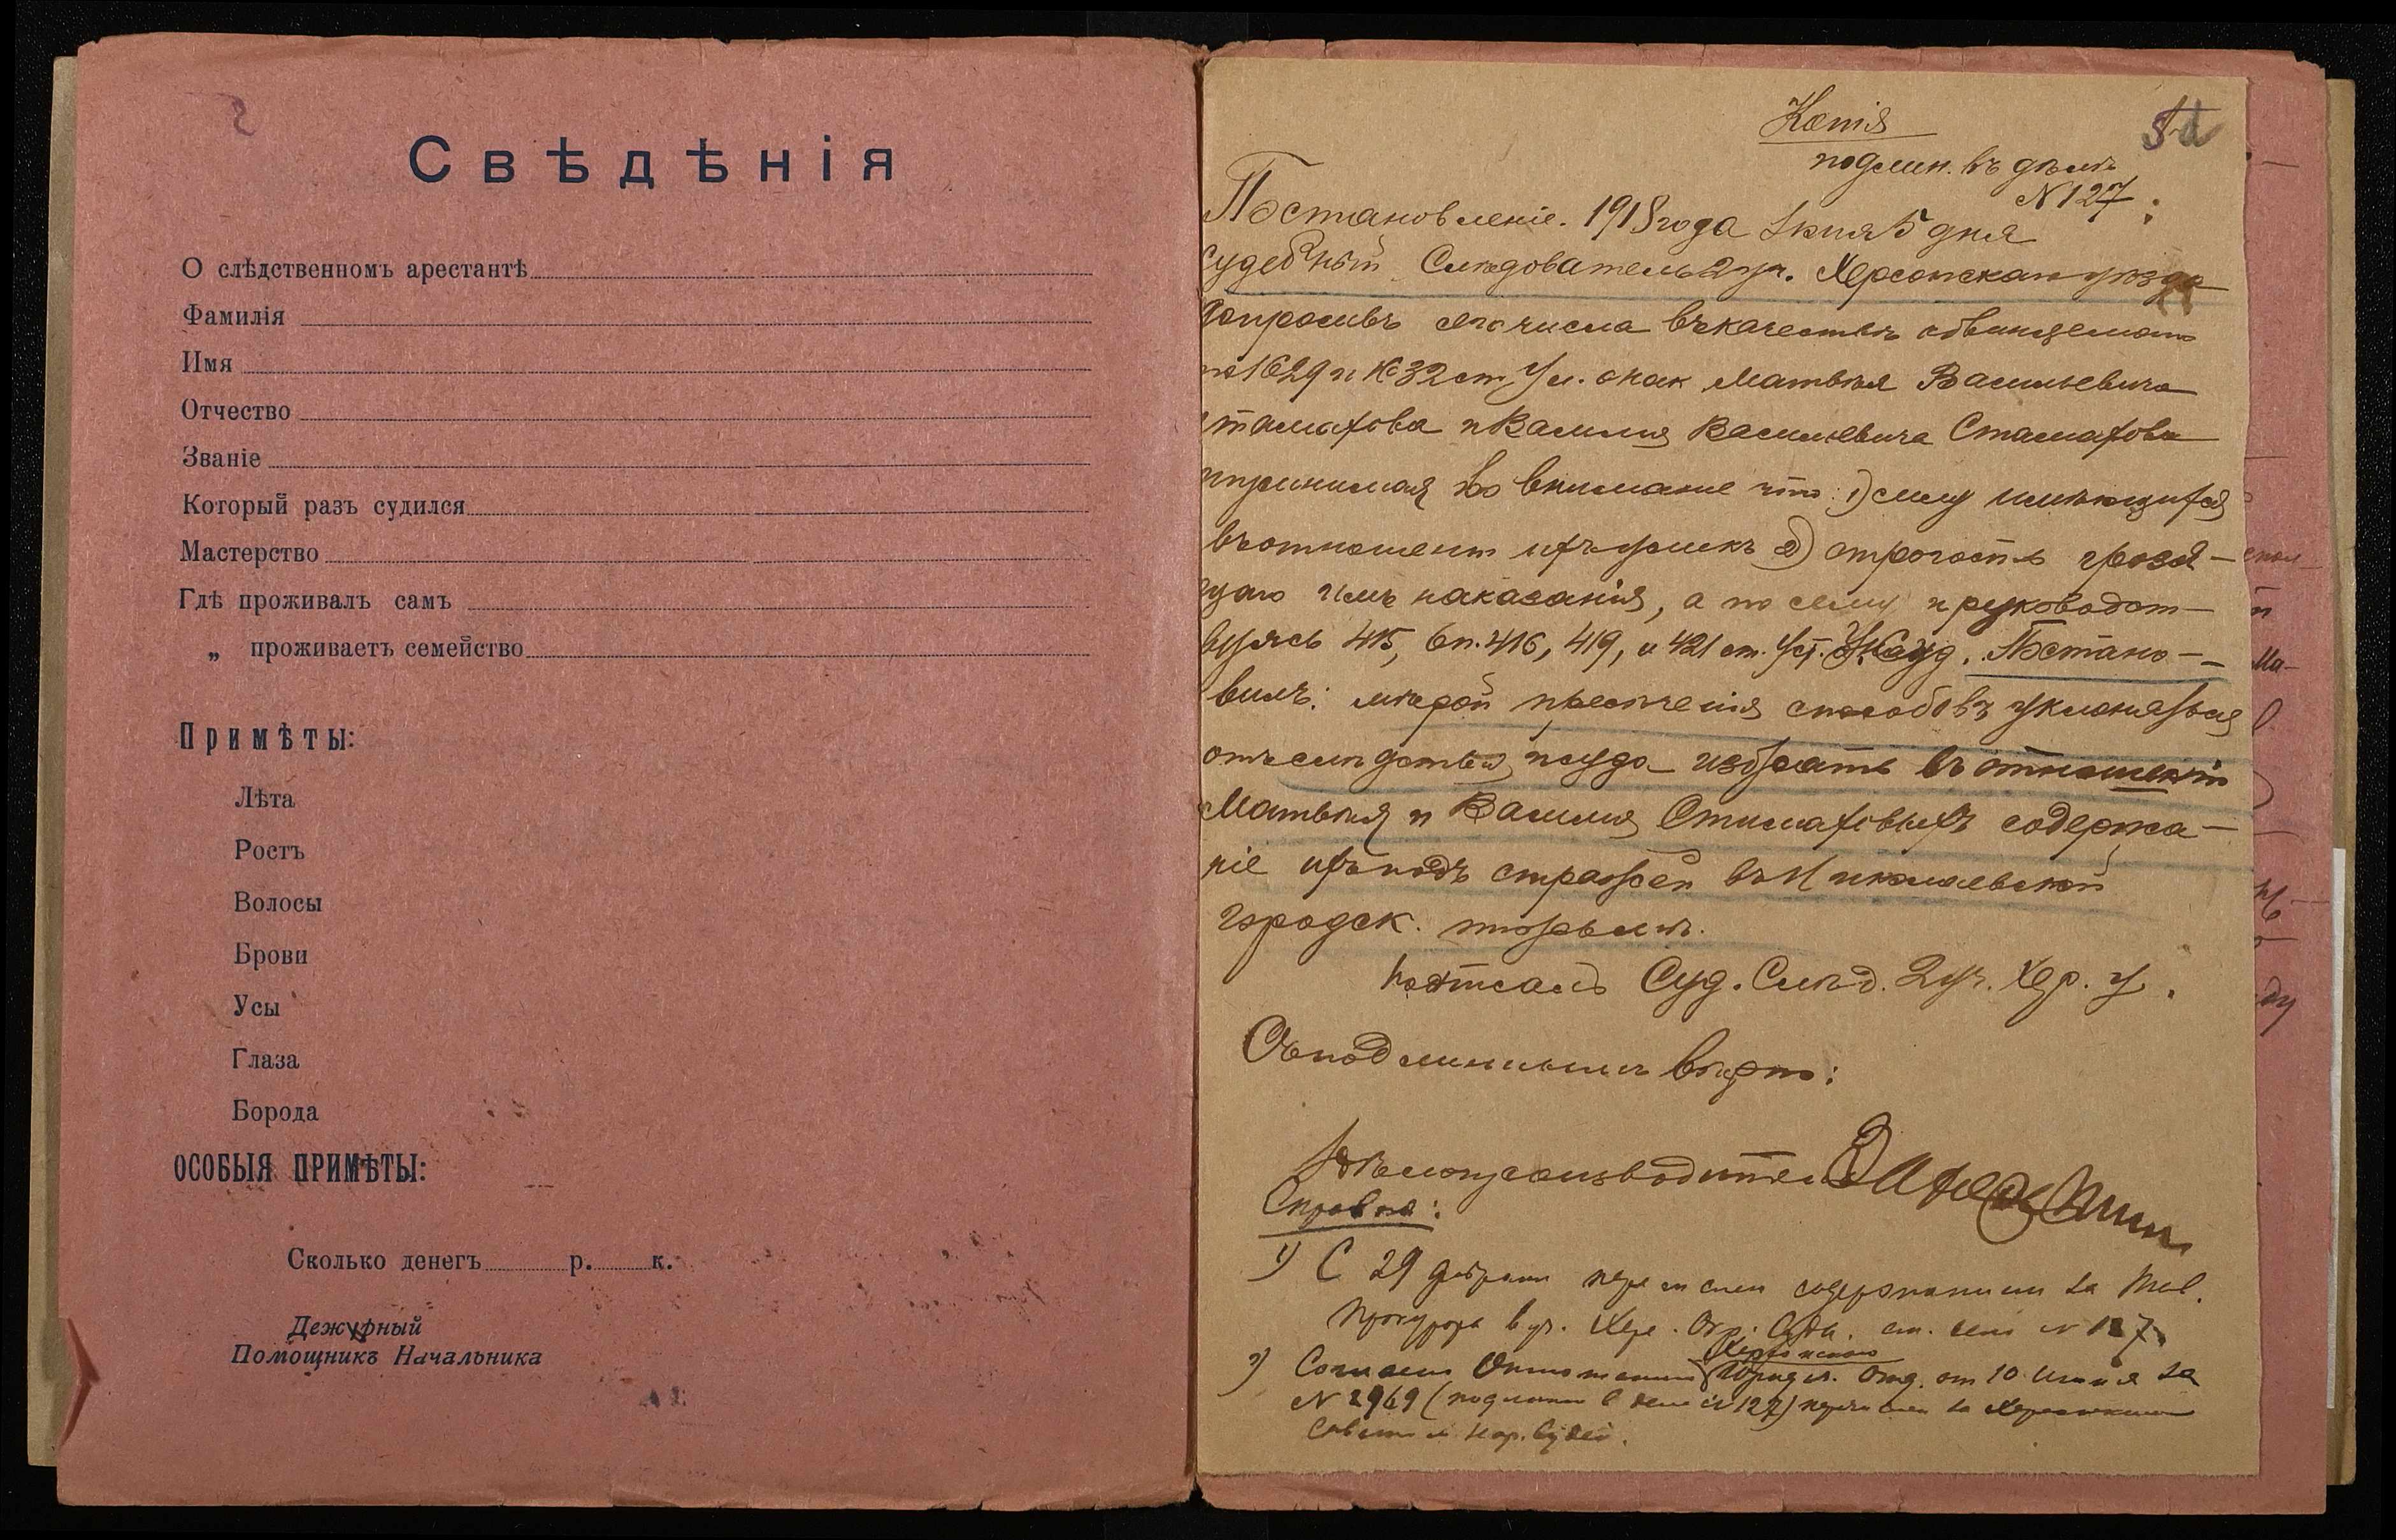 Свѣдѣнія
О слѣдственномъ арестантѣ
Фамилія
Имя
Отчество
Званіе
Который разъ судился
Мастерство
Гдѣ проживалъ самъ
„ проживаетъ семейство
Примѣты:
Лѣта
Ростъ
Волосы
Брови
Усы
Глаза
Борода
ОСОБЫЯ ПРИМѢТЫ:
Сколько денегъ р. к.
Дежурный
Помощникъ Начальника
Копія
подлин. въ дѣлѣ
N 127
Постановленіе. 1918 года 5 дня
Судебный Слѣдователь 2 уч. Херсонскаго уѣзда
допросивъ сего числа въ качествѣ обвиняемаго
по 1629 и 1632 ст. Ул. о нак Матвѣя Васильевича
Стаматова и Василія Васильевича Стаматова
и принимая во вниманіе что: 1) силу имѣющихся
въ отношеніи ихъ уликъ 2) строгость грозя-
щаго имъ наказанія, а по сему и руководст-
вуясь 415, 6 п. 416, 419, и 421 ст. Уст. Постано-
вилъ: мѣрой пресѣченія способовъ уклоняться
отъ слѣдствія и суда избрать въ отношеніи
Матвѣя и Василія Стаматовыхъ содержа-
ніе ихъ подъ стражей въ Николаевской
городск. тюрьмѣ.
Подписалъ Суд. Слѣд. 2 уч. Хер. у.
Съ подлиннымъ вѣрно:
Дѣлопроизводитель
Справка:
1) С 29 содержанием за Тов.
Прокурора уч. Хер. Окр. Суда. см. дело N 127
Херсонского
2) Согласно Отношения Юридич. Отд. от 10 Июня за
N 2969 (подлинн в деле N 127) перечислен за Херсонским
Советом Нар. Судей.